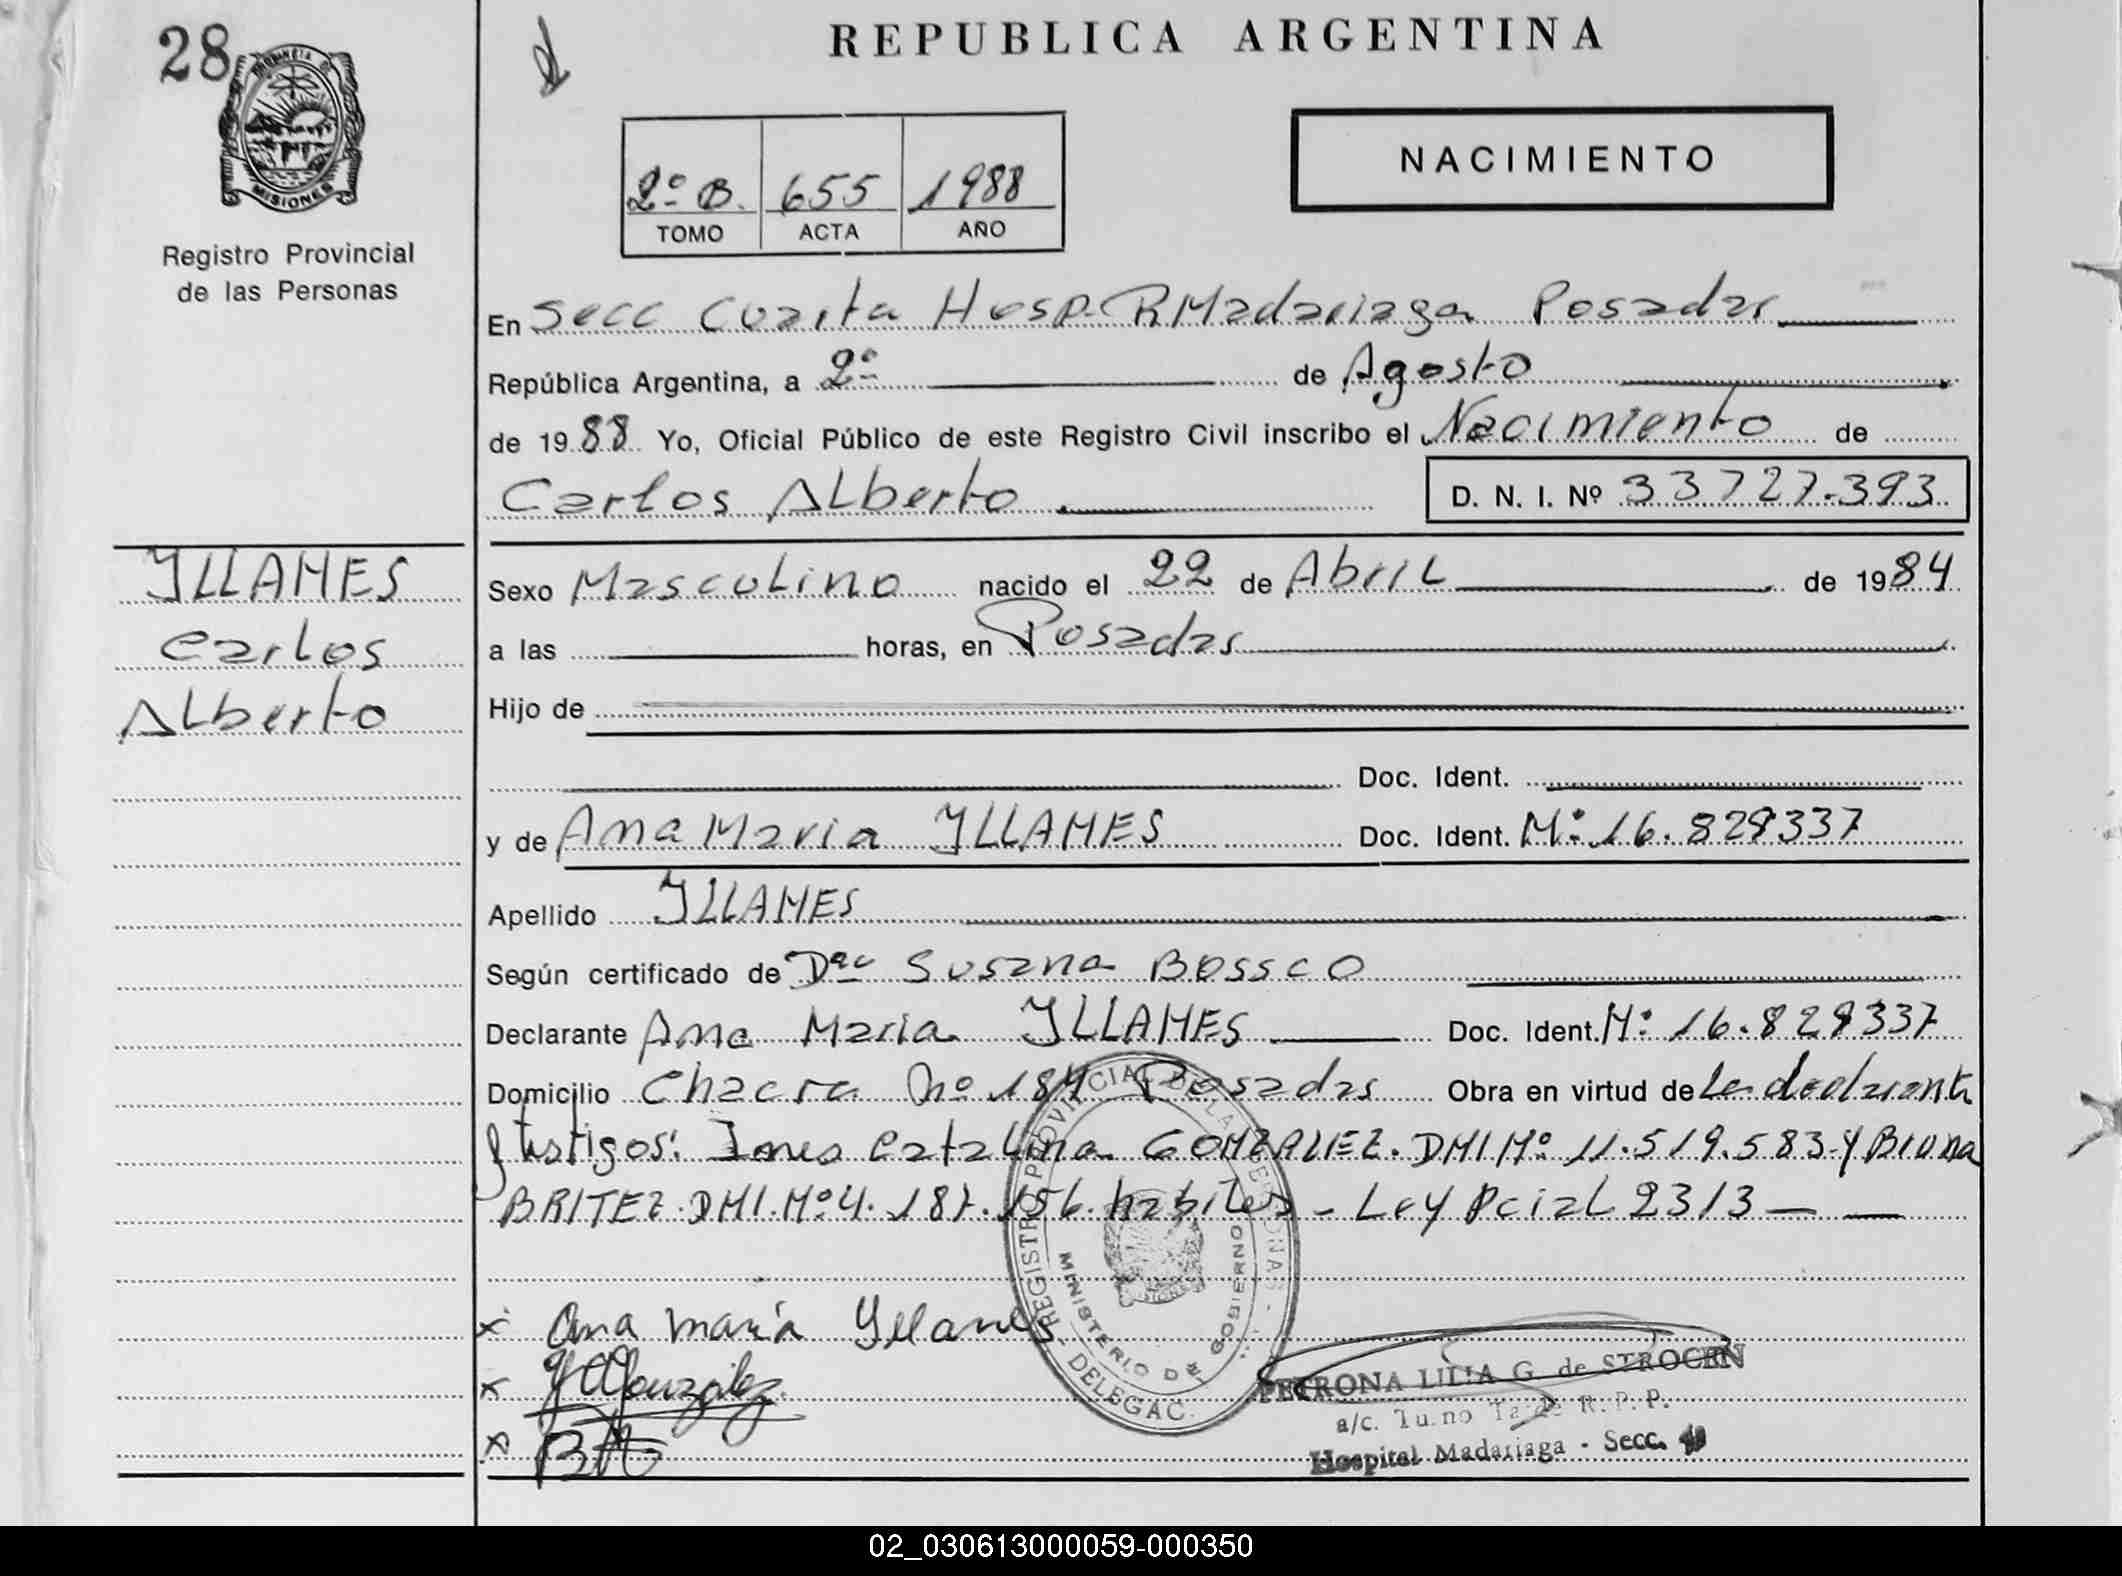 28
REPUBLICA ARGENTINA
PROVINCIA DE
MISIONES
Registro Provincial
de las Personas
2º B. 655 1988
TOMO ACTA AÑO
NACIMIENTO
En Secc Cuarta Hosp. R Madariaga Posadas
República Argentina, a 2º de Agosto
de 1988 Yo, Oficial Público de este Registro Civil inscribo el Nacimiento de
Carlos Alberto D. N. I. Nº 33727.393
YLLANES
Carlos
Alberto
Sexo Masculino nacido el 22 de Abril de 1984
a las horas, en Posadas
Hijo de
Doc. Ident.
y de Ana Maria YLLANES Doc. Ident. Nº 16.828337
Apellido YLLANES
Según certificado de Susana Bossco
Declarante Ana Maria YLLANES Doc. Ident. Nº 16.828337
Domicilio Chacra Nº 184 Posadas Obra en virtud de La declarante
y testigos: Ines Catalina GONZALEZ. DNI Nº 11.519.583 y Bruna
BRITEZ. DNI. Nº 4.187.156. habiles - Ley Pcial 2313
REGISTRO PROVINCIAL DE LAS PERSONAS - DELEGAC.
MINISTERIO DE GOBIERNO
x Ana maria Yllanes
x Gonzalez
x
PETRONA LILIA G. de STROCEN
a/c. Turno Tarde R. P. P.
Hospital Madariaga - Secc.
02_030613000059-000350